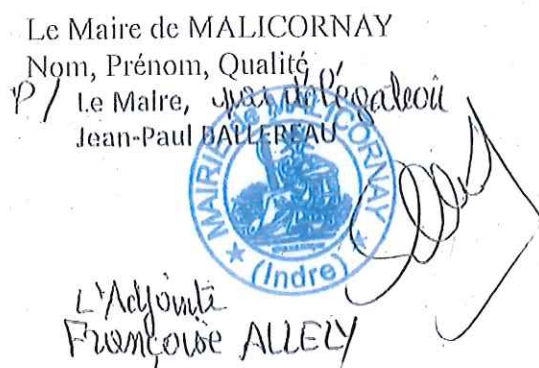 Le Maire de MALICORNAY
Nom, Prénom, Qualité
P/ Le Maire, par délégation
Jean-Paul DALLEREAU
MAIRIE de MALICORNAY
(Indre)
L'Adjointe
Françoise ALLELY